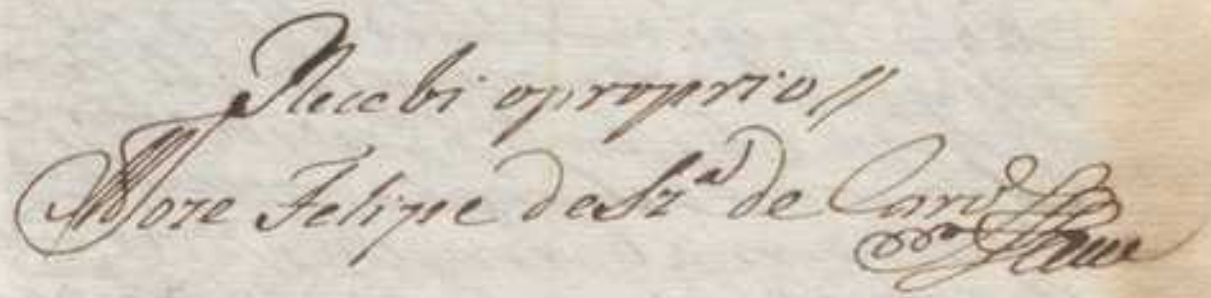 Recebi oproprio //
Joze Felipe de Sz.ª de Carv.º